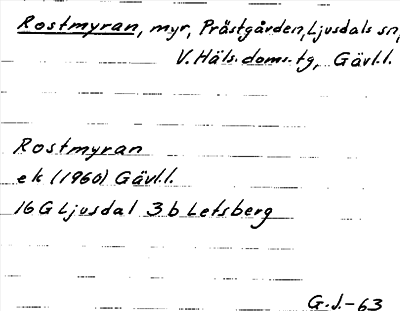 Rostmyran, myr, Prästgården, Ljusdals sn,
V. Häls. doms.tg, Gävl.l.
Rostmyran
ek (1960) Gävl.l.
16 G Ljusdal 3 b Letsberg
G.J.-63